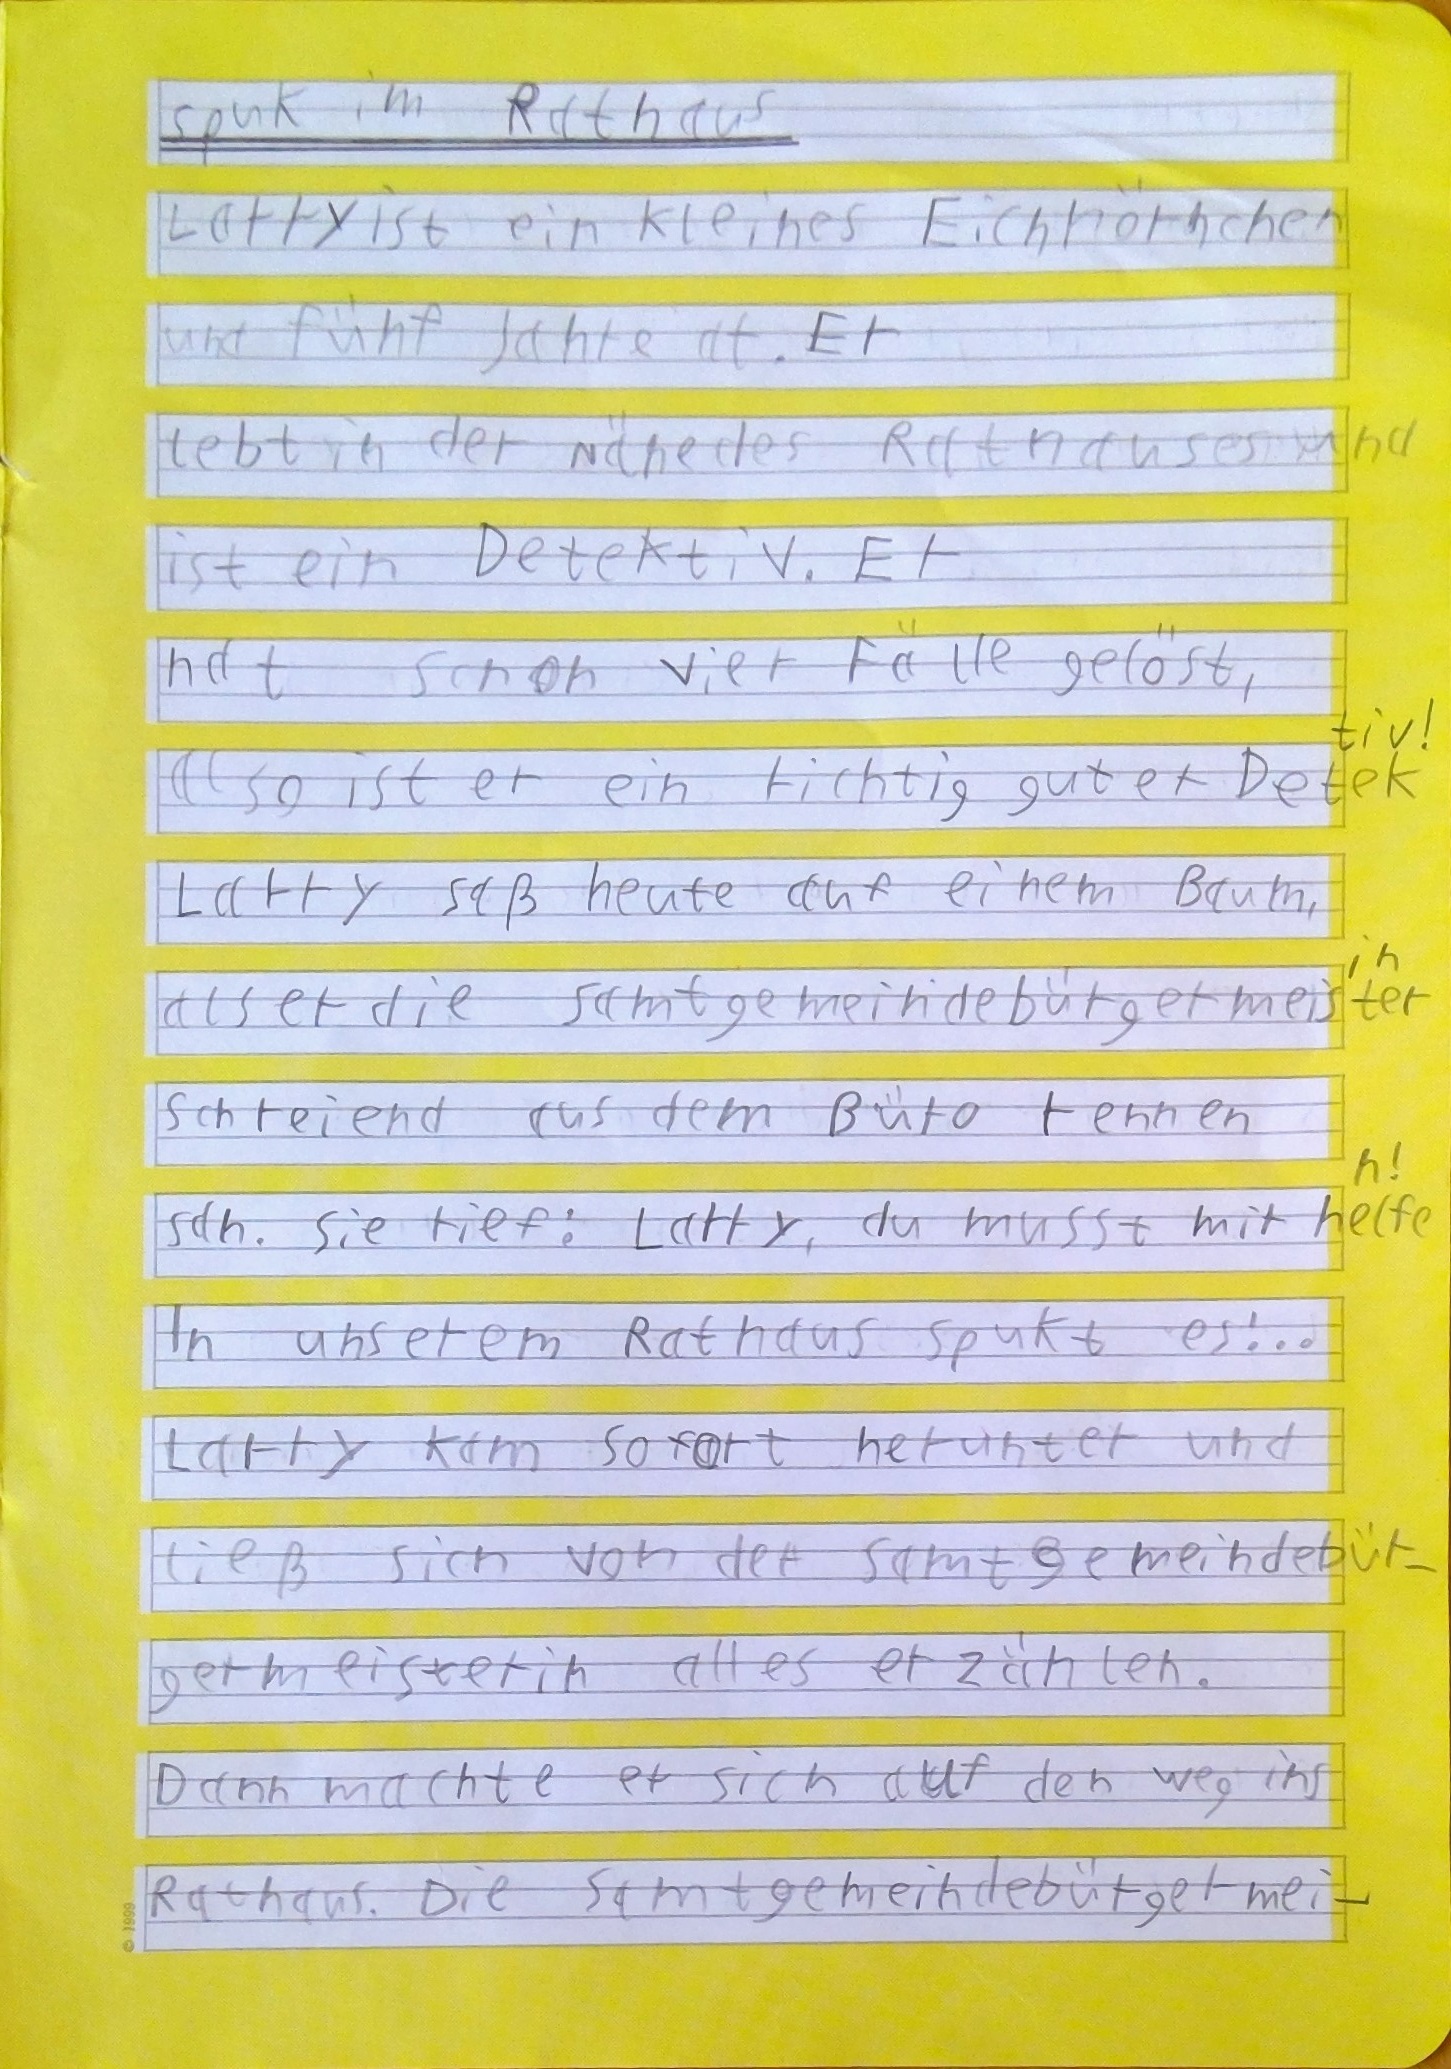 spuk im Rathaus
Larry ist ein kleines Eichhörnchen
und fünf Jahre alt. Er
lebt in der Nähe des Rathauses und
ist ein Detektiv. Er
hat schon vier Fälle gelöst,
also ist er ein richtig guter Detektiv!
Larry saß heute auf einem Baum,
als er die Samtgemeindebürgermeisterin
schreiend aus dem Büro rennen
sah. Sie rief: Larry, du musst mir helfen!
In unserem Rathaus spukt es!...
Larry kam sofort herunter und
ließ sich von der Samtgemeindebür-
germeisterin alles erzählen.
Dann machte er sich auf den weg ins
Rathaus. Die Samtgemeindebürgermei-
© 1999